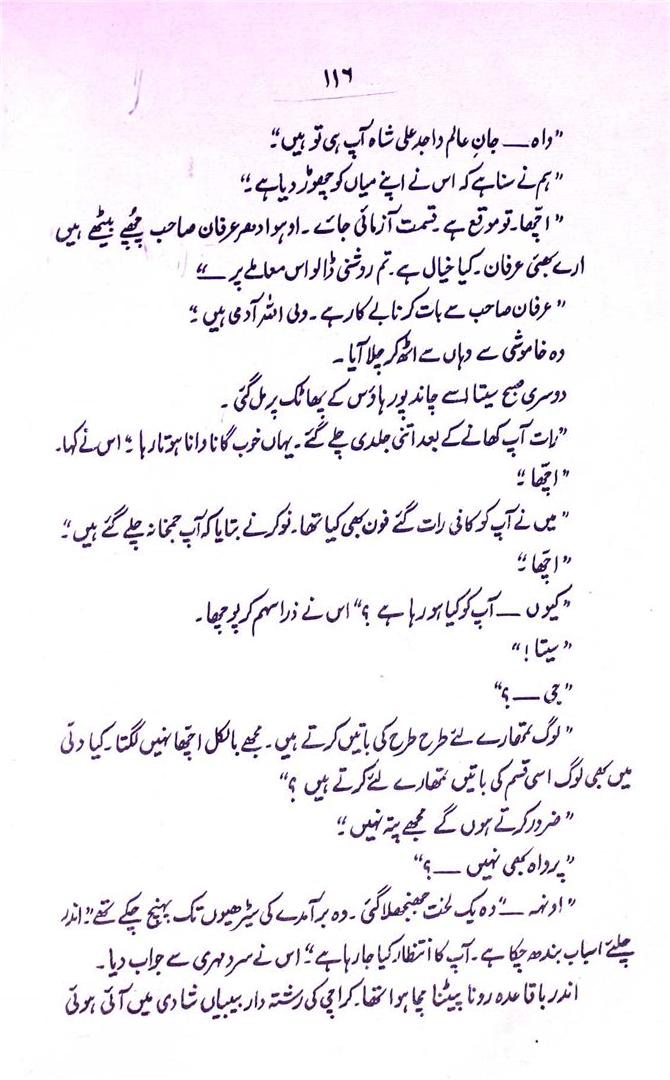 ۱۱۶
”واہ ــــ جانِ عالم واجد علی شاہ آپ ہی تو ہیں“۔
”ہم نے سنا ہے کہ اس نے اپنے میاں کو چھوڑ دیا ہے۔“
”اچھا۔ تو موقع ہے۔ قسمت آزمائی جائے۔ اوہو ادھر عرفان صاحب چھُپے بیٹھے ہیں
ارے بھئی عرفان۔ کیا خیال ہے۔ تم روشنی ڈالو اس معاملے پر ــــ“
”عرفان صاحب سے بات کرنا بے کار ہے۔ ولی اللہ آدمی ہیں۔“
وہ خاموشی سے وہاں سے اٹھ کر چلا آیا۔
دوسری صبح سیتا اسے چاند پور ہاؤس کے پھاٹک پر مل گئی۔
”رات آپ کھانے کے بعد اتنی جلدی چلے گئے۔ یہاں خوب گانا وانا ہوتا رہا۔“ اس نے کہا۔
”اچھا۔“
”میں نے آپ کو کافی رات گئے فون بھی کیا تھا۔ نوکر نے بتایا کہ آپ جمخانہ چلے گئے ہیں۔“
”اچھا۔“
”کیوں ــــ آپ کو کیا ہو رہا ہے؟“ اس نے ذرا سہم کر پوچھا۔
”سیتا!“
”جی ــــ؟“
”لوگ تمھارے لئے طرح طرح کی باتیں کرتے ہیں۔ مجھے بالکل اچھا نہیں لگتا۔ کیا دلّی
میں بھی لوگ اسی قسم کی باتیں تمھارے لئے کرتے ہیں؟“
”ضرور کرتے ہوں گے مجھے پتہ نہیں۔“
”پرواہ بھی نہیں ــــ؟“
”اونہہ ــــ“ وہ یک لخت جھنجھلا گئی۔ وہ برآمدے کی سیڑھیوں تک پہنچ چکے تھے۔ ”اندر
چلئے اسباب بندھ چکا ہے۔ آپ کا انتظار کیا جا رہا ہے۔“ اس نے سرد مہری سے جواب دیا۔
اندر باقاعدہ رونا پیٹنا مچا ہوا تھا۔ کراچی کی رشتہ دار بیبیاں شادی میں آئی ہوئی